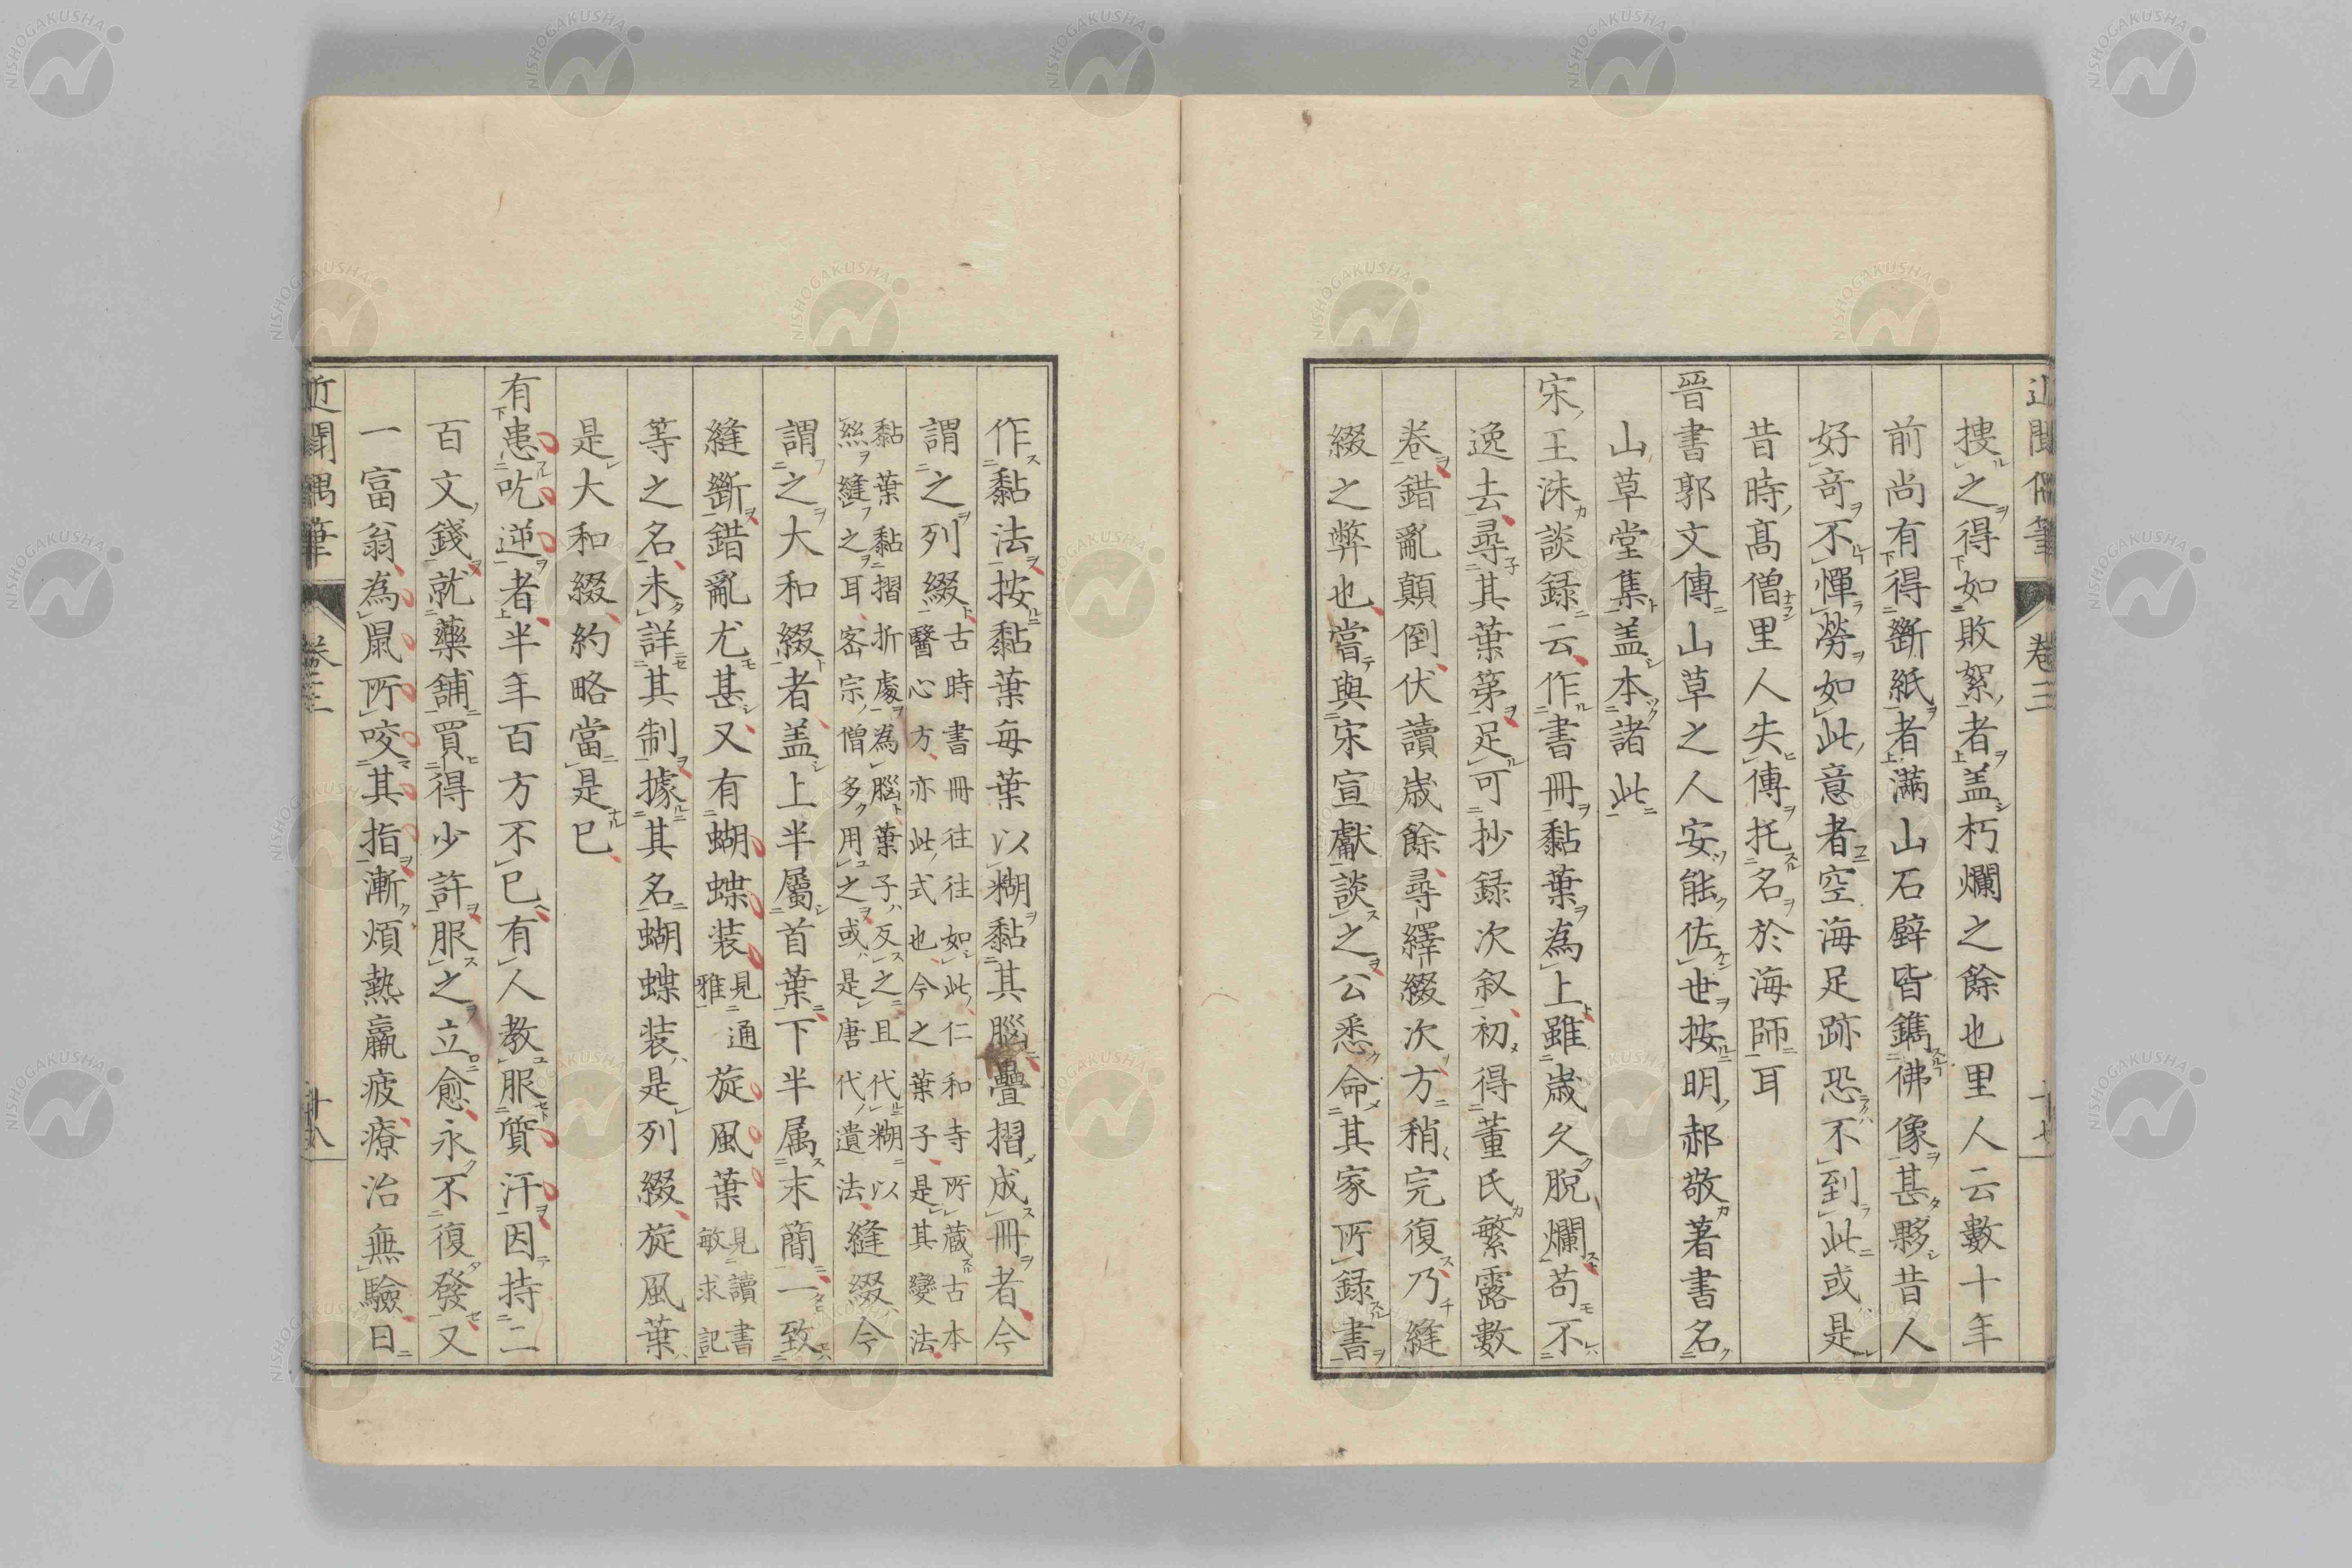 近聞偶筆
卷三
十七
搜之得如敗絮者盖朽爛之餘也里人云數十年
前尚有得斷紙者滿山石壁皆鐫佛像甚夥昔人
好奇不憚勞如此意者空海足跡恐不到此或是
昔時髙僧里人失傳托名於海師耳
晉書郭文傳山草之人安能佐世按明郝敬著書名
山草堂集盖本諸此
宋王洙談録云作書冊黏葉為上雖歲久脫爛苟不
逸去尋其葉第足可抄録次叙初得董氏繁露數
卷錯亂顛倒伏讀歲餘尋繹綴次方稍完復乃縫
綴之弊也嘗與宋宣獻談之公悉命其家所録書
作黏法按黏葉每葉以糊黏其腦疊摺成冊者今
謂之列綴古時書冊往往如此仁和寺所藏古本
醫心方亦此式也今之葉子是其變法
黏葉黏摺折處為腦葉子反之且代糊以
絲縫之耳密宗僧多用之或是唐代遺法縫綴今
謂之大和綴者盖上半屬首葉下半属末簡一致
縫斷錯亂尤甚又有蝴蝶装見通雅旋風葉見讀書敏求記
等之名未詳其制據其名蝴蝶装是列綴旋風葉
是大和綴約略當是已
有患吃逆者半年百方不已有人教服質汗因持二
百文錢就藥舖買得少許服之立愈永不復發又
一富翁為鼠所咬其指漸煩熱羸疲療治無驗日
近聞偶筆
卷三
十八
NISHOGAKUSHA